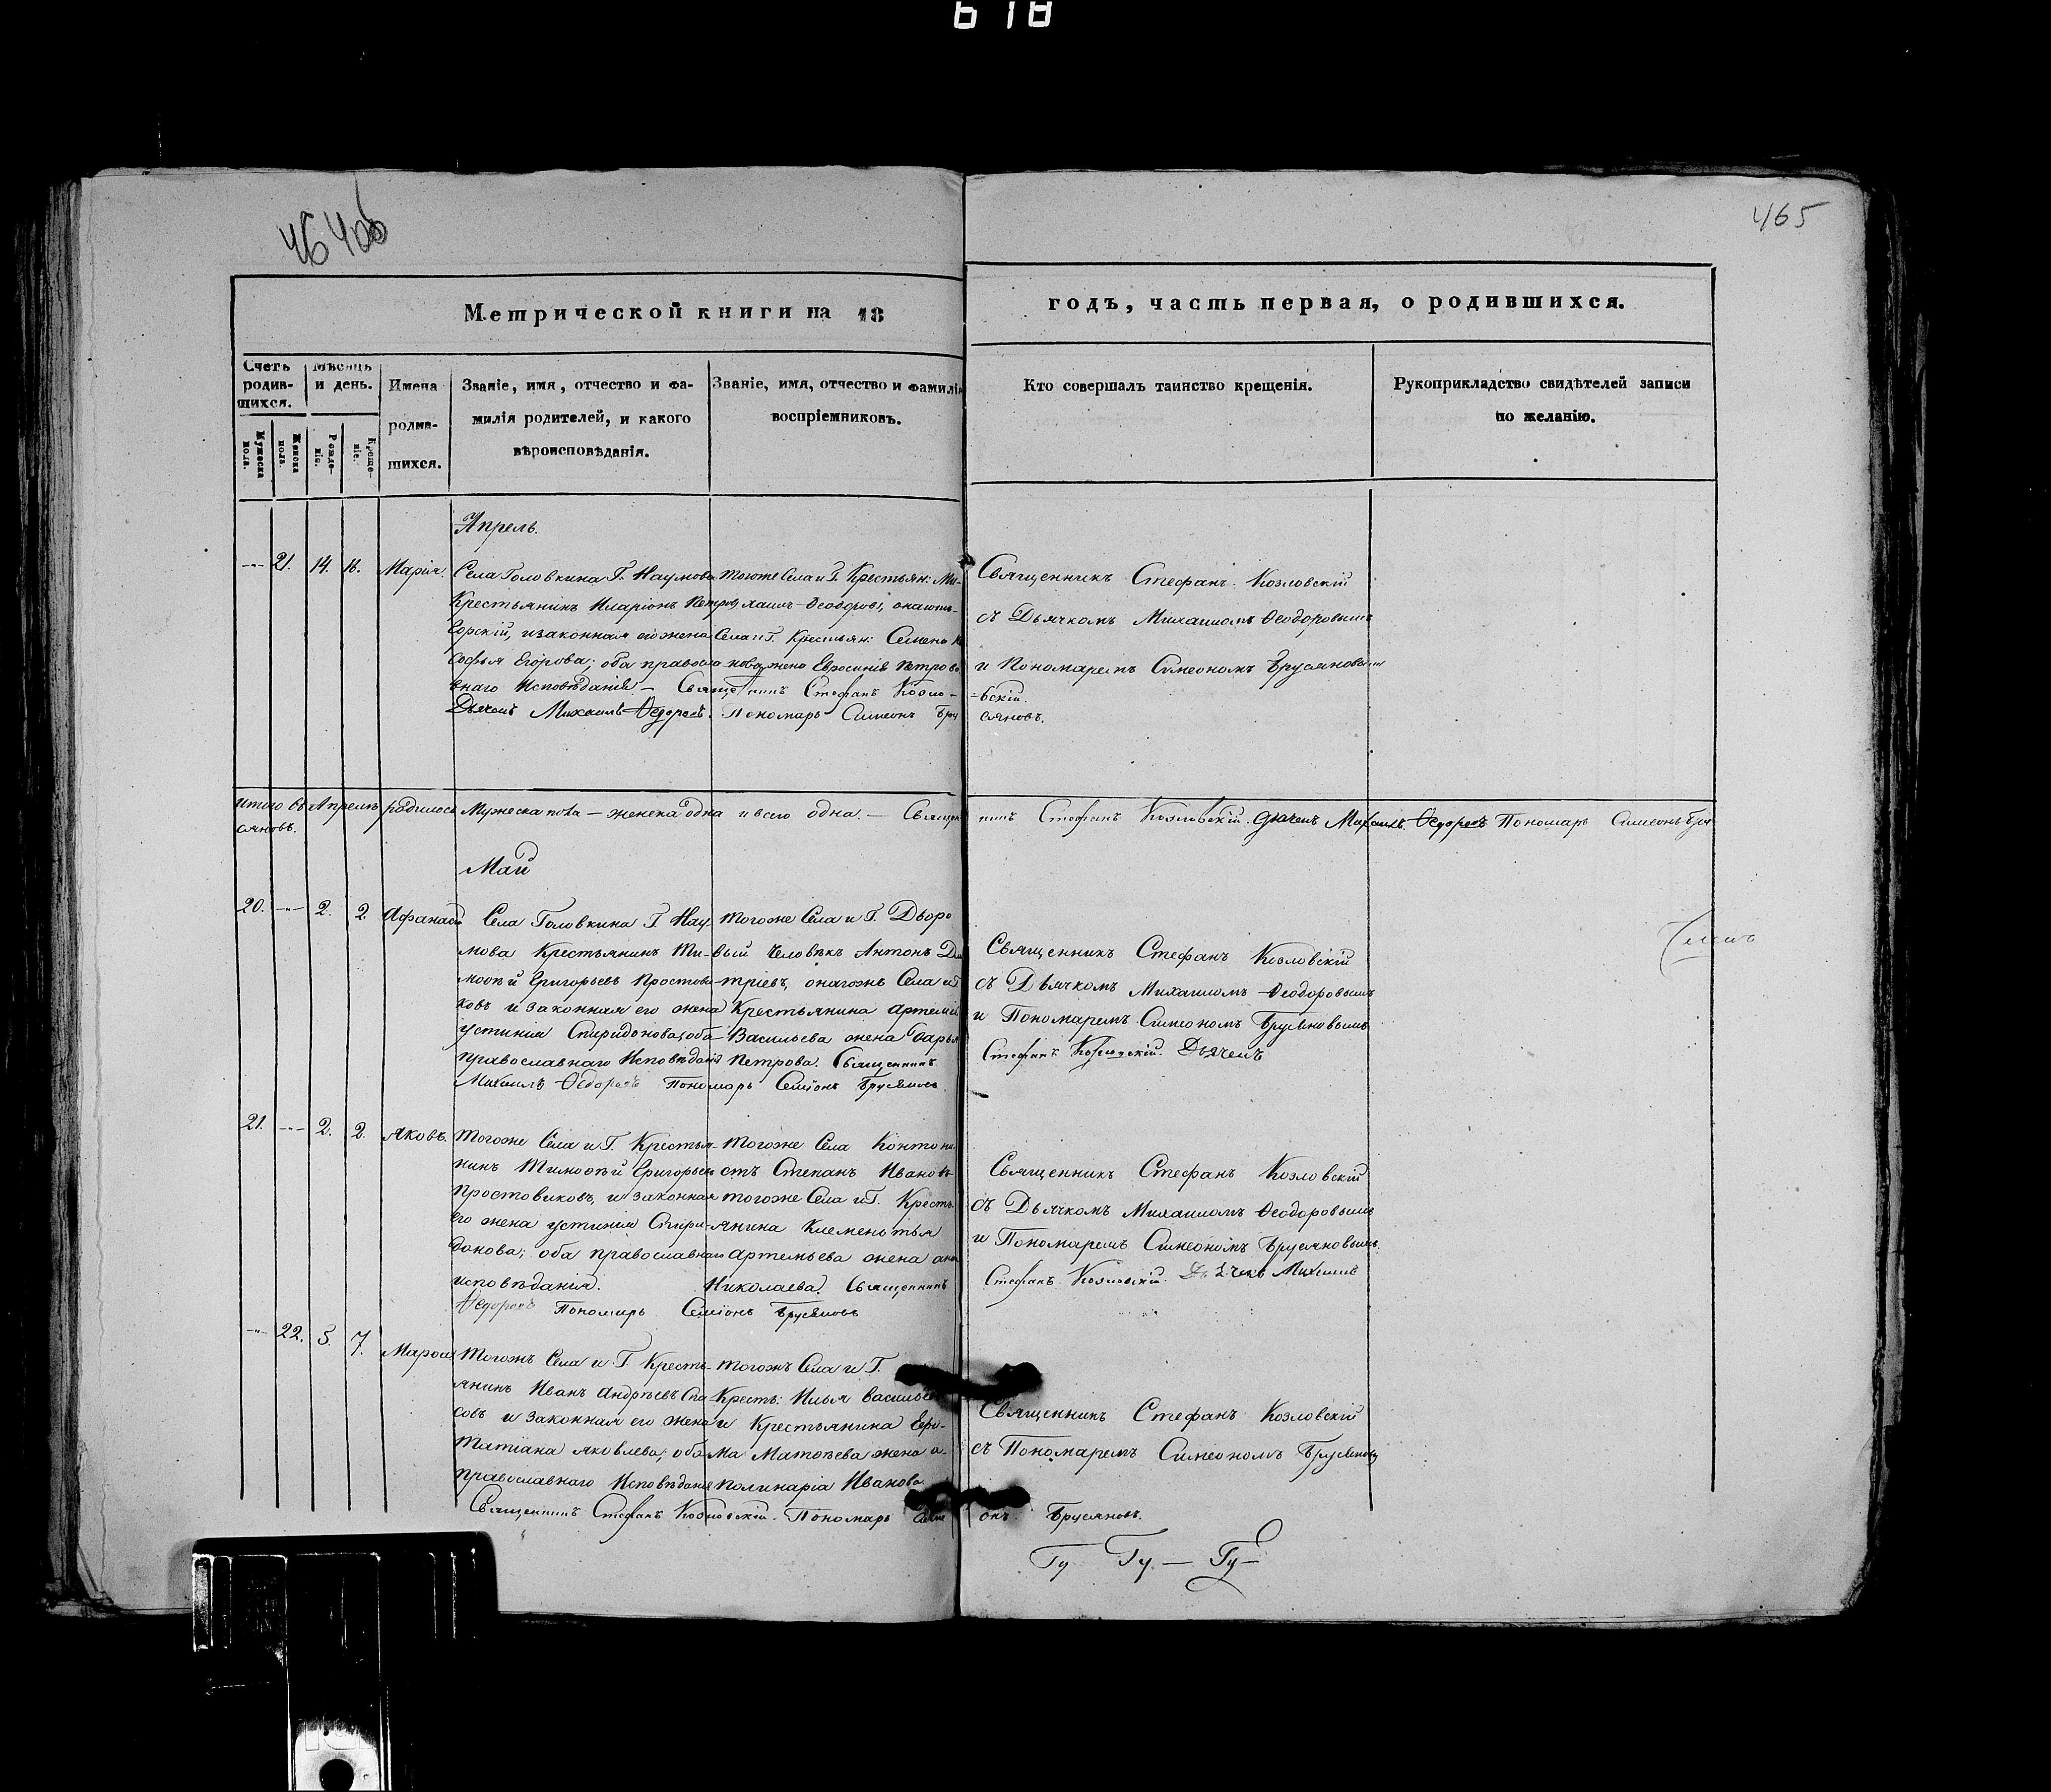 618
464об
465
Метрической книги на 18 годъ, часть первая, о родившихся.
Счетъ родив-шихся.
Мужеска пола.
Женска пола.
Мѣсяцъ и день.
Рожде-нія.
Креще-нія.
Имена родив-шихся.
Званіе, имя, отчество и фа-
милія родителей, и какого
вѣроисповѣданія.
Званіе, имя, отчество и фамилія
воспріемниковъ.
Кто совершалъ таинство крещенія.
Рукоприкладство свидѣтелей записи
по желанію.
Апрель.
-"- 21. 14. 16. Марія.
Села Головкина Г. Наумова
Крестьянинъ Иларіонъ Петровъ
Егорскій, и законная его жена
Софья Егорова; оба правосла-
внаго Исповѣданія —
тогоже Села и Г. Крестьян: Ми-
хаилъ Ѳеодоровъ, онаготъ-
Села и Г. Крестьян: Семена
жена Евросинія Петрова
Священникъ Стефанъ Козло-
вскій.
Дьячекъ Михаилъ Ѳедоровъ. Пономарь Симеонъ Бру
сяновъ.
Священникъ Стефанъ Козловскій
съ Дьячкомъ Михаиломъ Ѳеодоровымъ
и Пономаремъ Симеономъ Брусяновымъ
Итого въ Апрелѣ родилось Мужеска пола — женска одна и всего одна. — Священникъ Стефанъ Козловскій. Дьячекъ Михаилъ Ѳедоровъ Пономарь Симеонъ Бру
сяновъ.
Май
20. -"- 2. 2. Афанасій
Села Головкина Г. Нау-
мова Крестьянинъ Ти-
моѳѣй Григорьевъ Простови-
ковъ и законная его жена
Устинія Спиридонова; оба
православнаго Исповѣданія
тогоже Села и Г. Дворо
вый Человѣкъ Антонъ Дми
тріевъ, онагожъ Села и Г.
Крестьянина Артемія
Васильева жена Дарья
Петрова. Священникъ
Стефанъ Козловскій. Дьячекъ
Михаилъ Ѳедоровъ Пономарь Семіонъ Брусяновъ.
Священникъ Стефанъ Козловскій
съ Дьячкомъ Михаиломъ Ѳеодоровымъ
и Пономаремъ Симеономъ Брусяновымъ
21. -"- 2. 2. Яковъ.
Тогоже Села и Г. Крестья-
нинъ Тимоѳѣй Григорьевъ
Простовиковъ, и законная
его жена Устинія Спири-
донова; оба православнаго
исповѣданія.
тогоже Села Контони
стъ Степанъ Ивановъ
тогоже Села и Г. Кресть
янина Клеменьтья
Артемьева жена Анна
Николаева. Священникъ
Стефанъ Козловскій. Дьячекъ Михаилъ
Ѳедоровъ Пономарь Семіонъ Брусяновъ
Священникъ Стефанъ Козловскій
съ Дьячкомъ Михаиломъ Ѳеодоровымъ
и Пономаремъ Симеономъ Брусяновымъ.
-"- 22. 5. 7.
Тогожъ Села и Г. Кресть-
янинъ Иванъ Андрѣевъ Спа-
совъ и законная его жена
Татіана Яковлева; оба
православнаго Исповѣданія
тогожъ Села и Г.
Кресть: Илья Васильевъ
и Крестьянина Ефи-
ма Матѳѣева жена А-
полинарія Иванова
Священникъ Стефанъ Козловскій
съ Пономаремъ Симеономъ Брусяновымъ
Священникъ Стефанъ Козловскій. Пономарь Симе
онъ Брусяновъ.
Гу Гу — Гу —